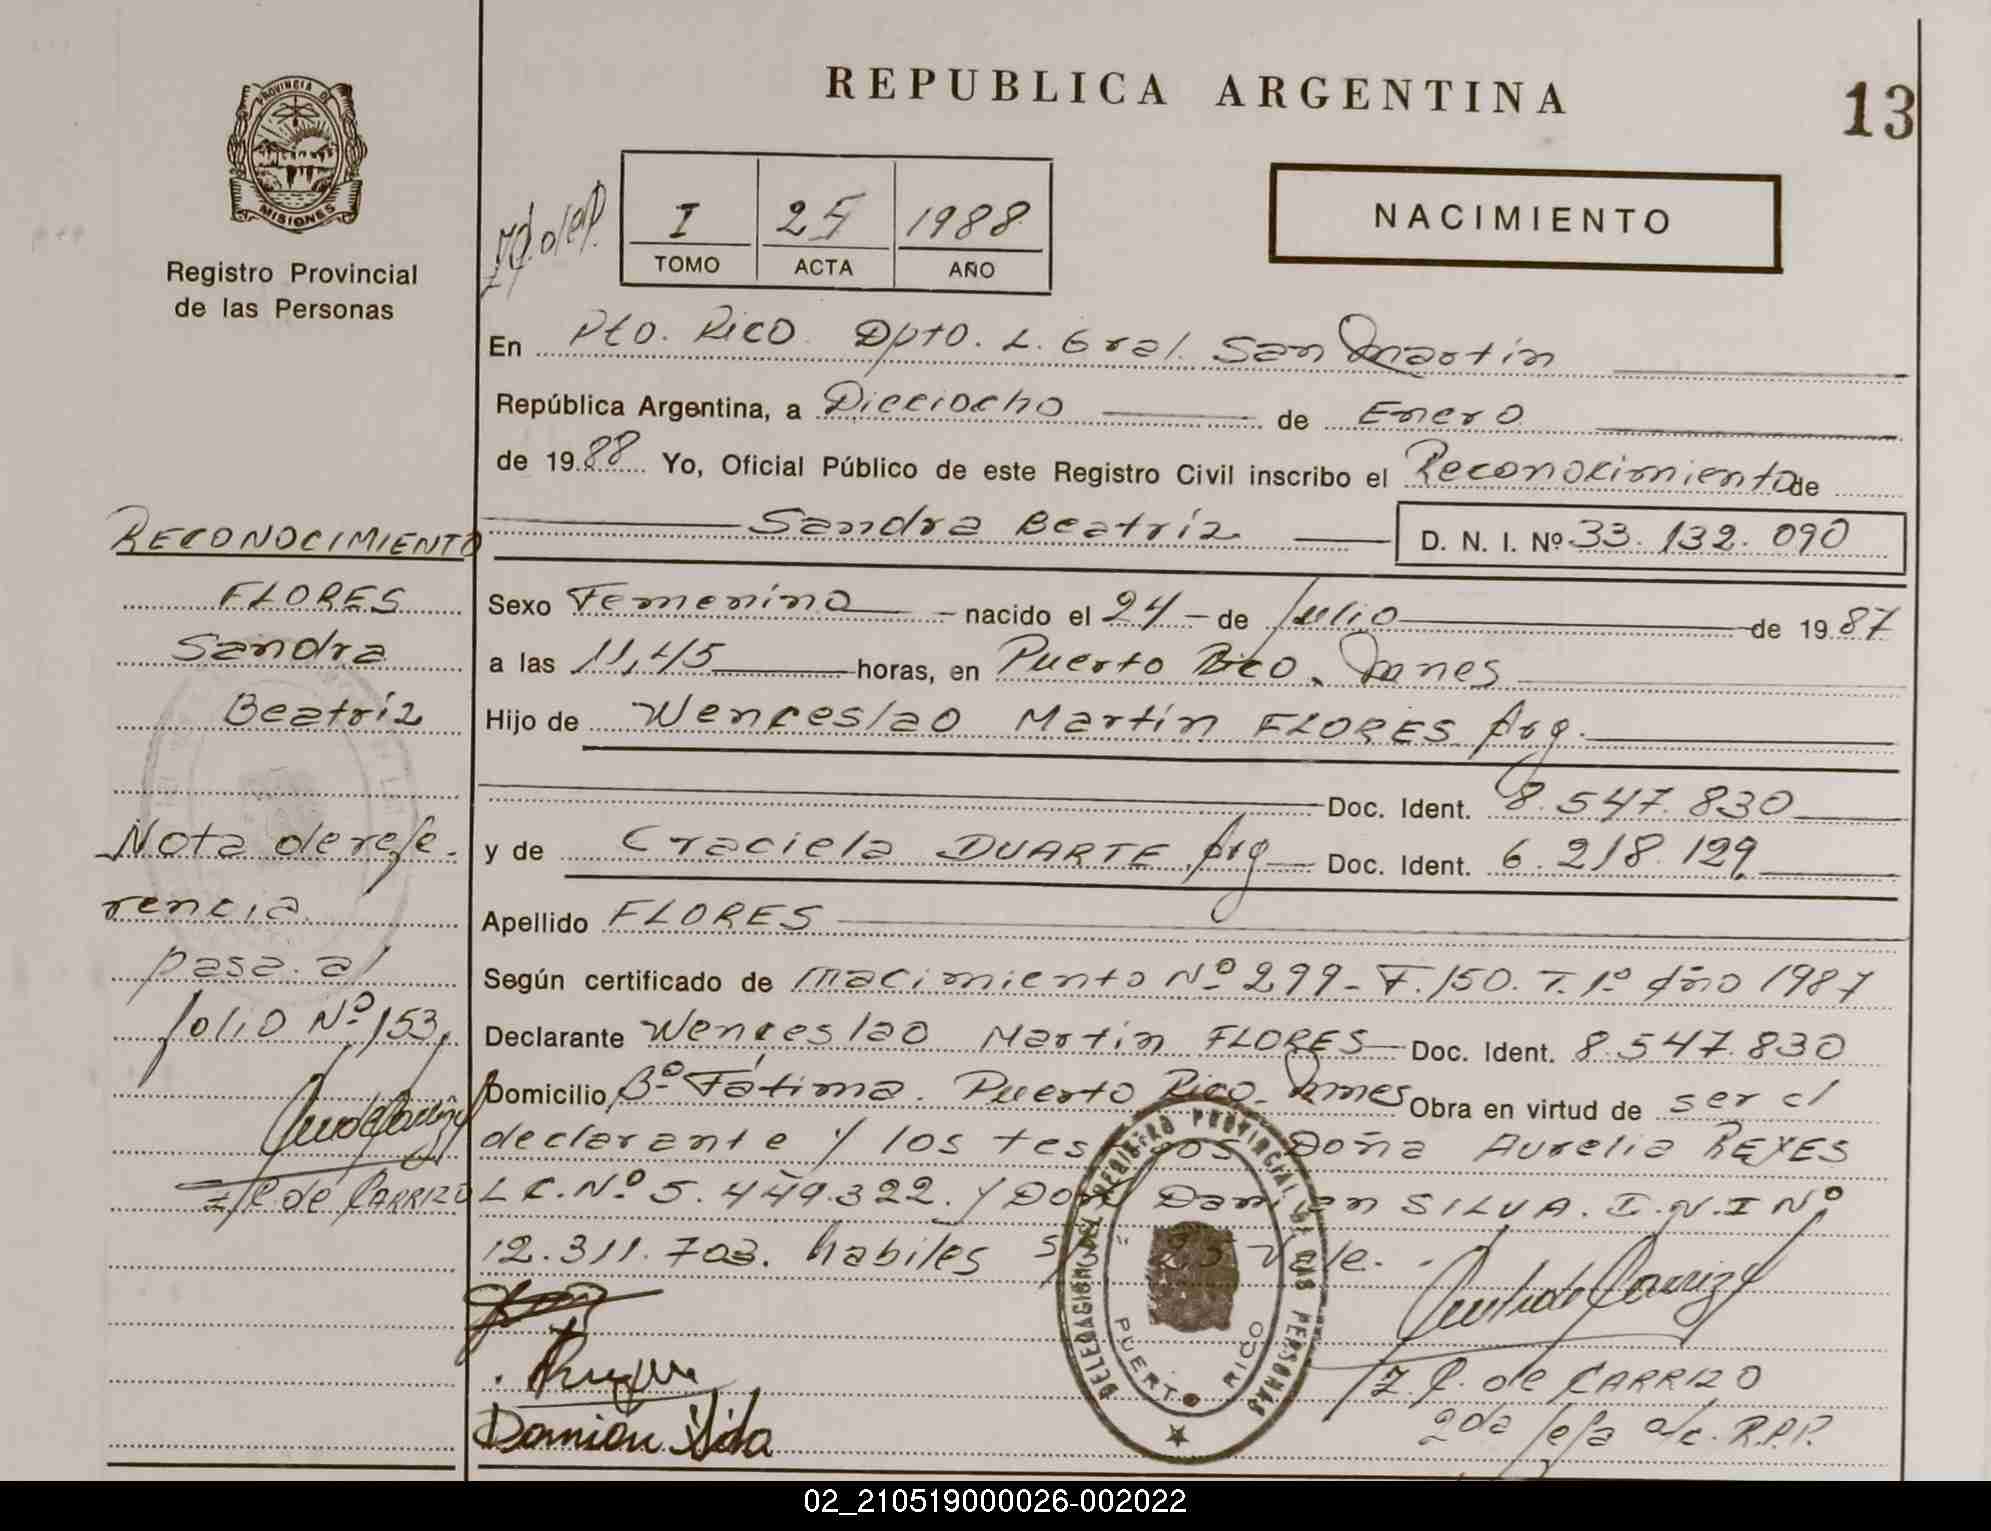 REPUBLICA ARGENTINA
13
PROVINCIA DE
MISIONES
Registro Provincial
de las Personas
I 25 1988
TOMO ACTA AÑO
NACIMIENTO
En Pto. Rico Dpto. L. Gral. San Martín
República Argentina, a Dieciocho de Enero
de 1988 Yo, Oficial Público de este Registro Civil inscribo el Reconocimiento de
Sandra Beatríz D. N. I. Nº 33.132.090
Sexo Femenino nacido el 24 de Julio de 1987
a las 11,45 horas, en Puerto Rico. Mnes
Hijo de Wenceslao Martín FLORES Arg.
Doc. Ident. 8.547.830
y de Graciela DUARTE Arg Doc. Ident. 6.218.129
Apellido FLORES
Según certificado de Nacimiento Nº 299- F. 150. T. 1º Año 1987
Declarante Wenceslao Martín FLORES Doc. Ident. 8.547.830
Domicilio Bº Fátima. Puerto Rico. Mnes Obra en virtud de ser el
declarante y los testigos Doña Aurelia REYES
L C. Nº 5.449.322. y Don Damian SILVA. D.N.I Nº
12.311.703. habiles s/r " 25 Vale.
RECONOCIMIENTO
FLORES
Sandra
Beatríz
Nota de refe-
rencia
pasa al
folio Nº 153
I/C. de CARRIZO
Damián Silva
DELEGACION DEL REGISTRO PROVINCIAL DE LAS PERSONAS
PUERTO RICO
de CARRIZO
2da Jefa a/c. R.P.P.
02_210519000026-002022